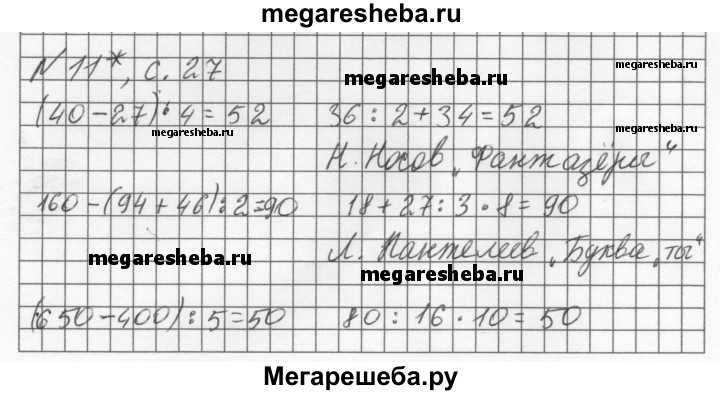 megaresheba.ru
N 11*, с. 27
megaresheba.ru
megaresheba.ru
(40-27)·4=52 36:2+34=52
megaresheba.ru
megaresheba.ru
Н. Носов „Фантазёры“
160-(94+46):2=90 18+27:3·8=90
megaresheba.ru
Л. Пантелеев „Буква „ты“
megaresheba.ru
(650-400):5=50 80:16·10=50
Мегарешеба.ру